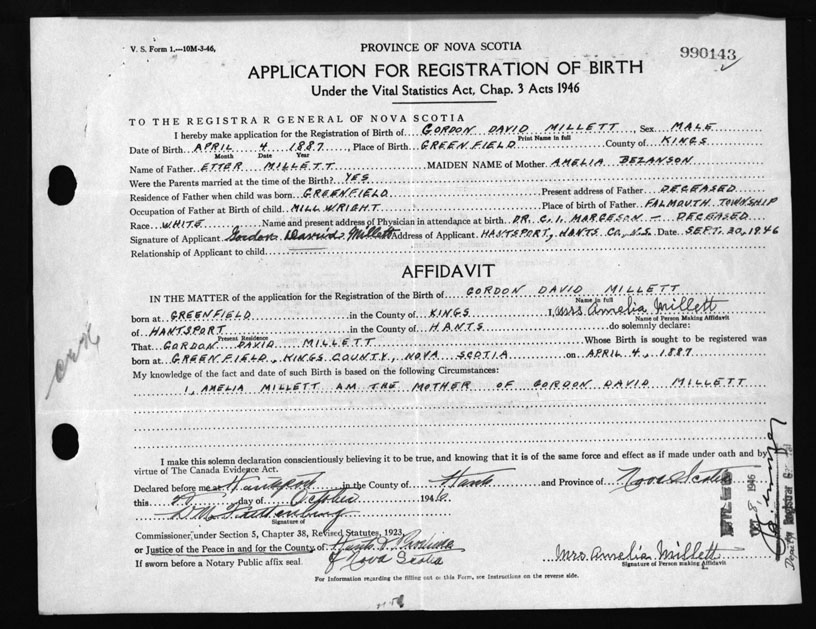 V. S. Form 1.—10M-3-46.
PROVINCE OF NOVA SCOTIA
990143
APPLICATION FOR REGISTRATION OF BIRTH
Under the Vital Statistics Act, Chap. 3 Acts 1946
TO THE REGISTRAR GENERAL OF NOVA SCOTIA
I hereby make application for the Registration of Birth of GORDON DAVID MILLETT, Sex MALE
Print Name in full
Date of Birth APRIL 4 1887, Place of Birth GREENFIELD County of KINGS
Month Date Year
Name of Father ETTER MILLETT MAIDEN NAME of Mother AMELIA BEZANSON
Were the Parents married at the time of the Birth? YES
Residence of Father when child was born GREENFIELD Present address of Father DECEASED
Occupation of Father at Birth of child MILLWRIGHT Place of birth of Father FALMOUTH TOWNSHIP
Race WHITE Name and present address of Physician in attendance at birth DR. C. I. MARGESON — DECEASED
Signature of Applicant Gordon David Millett Address of Applicant HANTSPORT, HANTS CO, N.S. Date SEPT. 20, 1946
Relationship of Applicant to child
AFFIDAVIT
IN THE MATTER of the application for the Registration of the Birth of GORDON DAVID MILLETT
Name in full
born at GREENFIELD in the County of KINGS I, Mrs Amelia Millett
Name of Person Making Affidavit
of HANTSPORT in the County of HANTS do solemnly declare:
Present Residence
That GORDON DAVID MILLETT Whose Birth is sought to be registered was
born at GREENFIELD, KINGS COUNTY, NOVA SCOTIA on APRIL 4, 1887
My knowledge of the fact and date of such Birth is based on the following Circumstances:
I, AMELIA MILLETT AM THE MOTHER OF GORDON DAVID MILLETT
I make this solemn declaration conscientiously believing it to be true, and knowing that it is of the same force and effect as if made under oath and by
virtue of The Canada Evidence Act.
Declared before me at Hantsport in the County of Hants and Province of Nova Scotia
this day of October 1946
Signature of
Commissioner, under Section 5, Chapter 38, Revised Statutes, 1923,
or Justice of the Peace in and for the County of Hants & Province
of Nova Scotia
If sworn before a Notary Public affix seal.
Mrs Amelia Millett
Signature of Person making Affidavit
For Information regarding the filling out of this Form, see Instructions on the reverse side.
FILED
8 1946
Deputy Registrar General